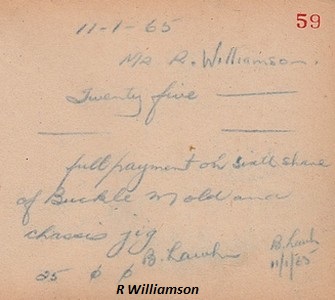 59
11-1-65
Mr R. Williamson.
Twenty five
full payment on sixth share
of Buckle Mold and
chassis jig
B. Lawh
B. Lawh
11/1/65
25 ¢ ¢
R Williamson